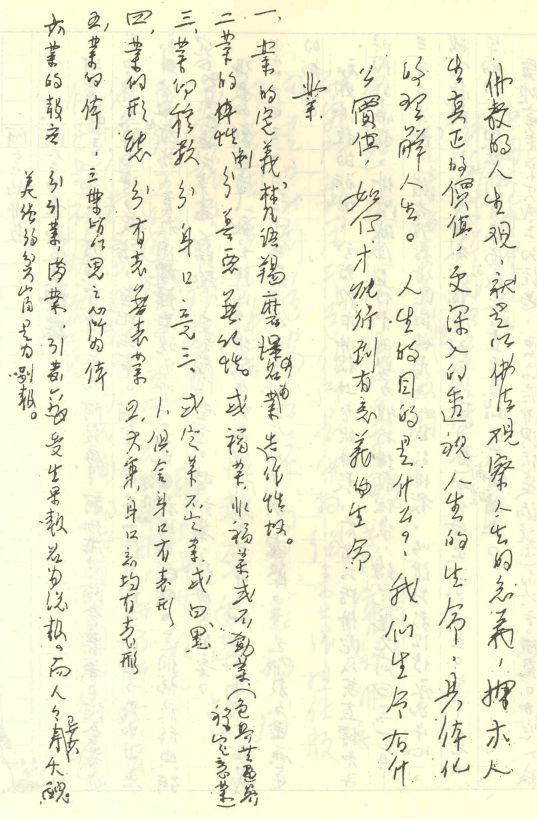 佛教的人生观,就是以佛法观察人生的意義,揭示人
生真正的價值,更深入的透視人生的生命,具体化
的理解人生。人生的目的是什么?我们生命有什
么價值,如何才能得到有意義的生命
業
一、業的定義,梵語羯磨,譯名為業,造作性故。
二業的体性 分善惡無記性。或福業非福業或不動業(色界無色界
禪定意業)
三、業的種類 分身口意三 或定業不定業或白黑
四、業的形態 分有表無表業 1、俱舍身口有表形
2、大乘身口意均有表形
五,業的体,三業皆以思之心所为体
六業的報应 分引業,滿業,引善惡受生果報名为总報。而人之壽夭醜
美强弱貧富是为别報。